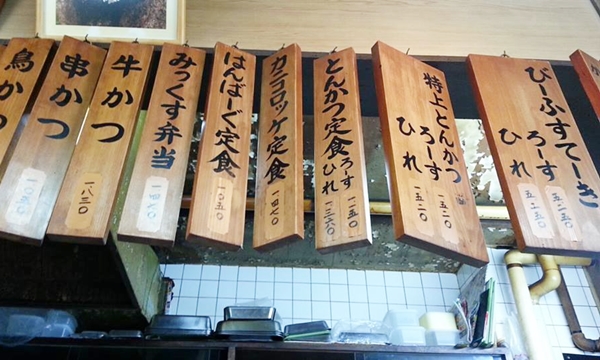 びーふすてーき
ろーす 五二五〇
ひれ 五二五〇
特上とんかつ
ろーす 一五二〇
ひれ 一五二〇
とんかつ定食
ろーす 一二五〇
ひれ 一三六〇
カニコロッケ定食
一四七〇
はんばーぐ定食
一〇五〇
みっくす弁当
一四七〇
牛かつ
一八三〇
串かつ
一〇五〇
鳥かつ